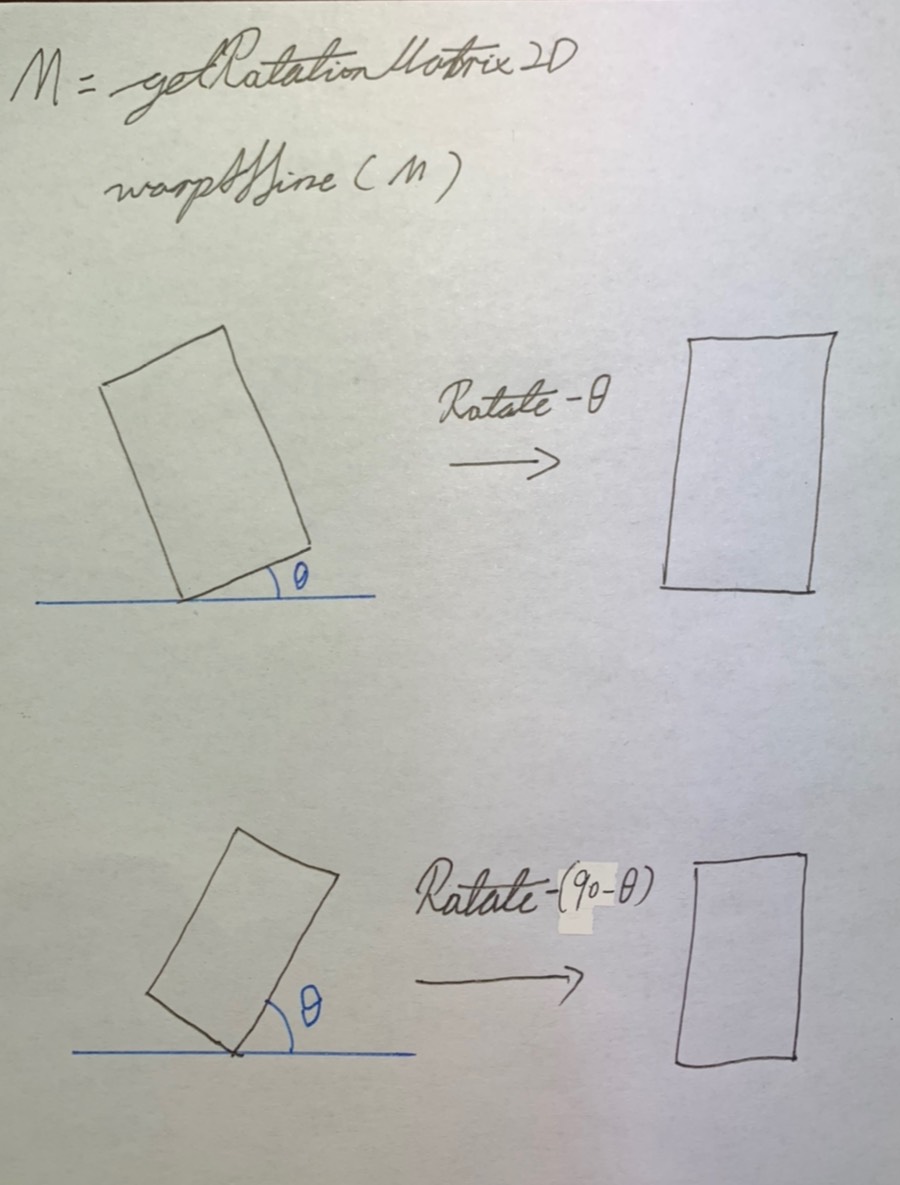 M = getRotationMatrix2D
warpAffine (M)
Rotate -θ
θ
Rotate -(90-θ)
θ